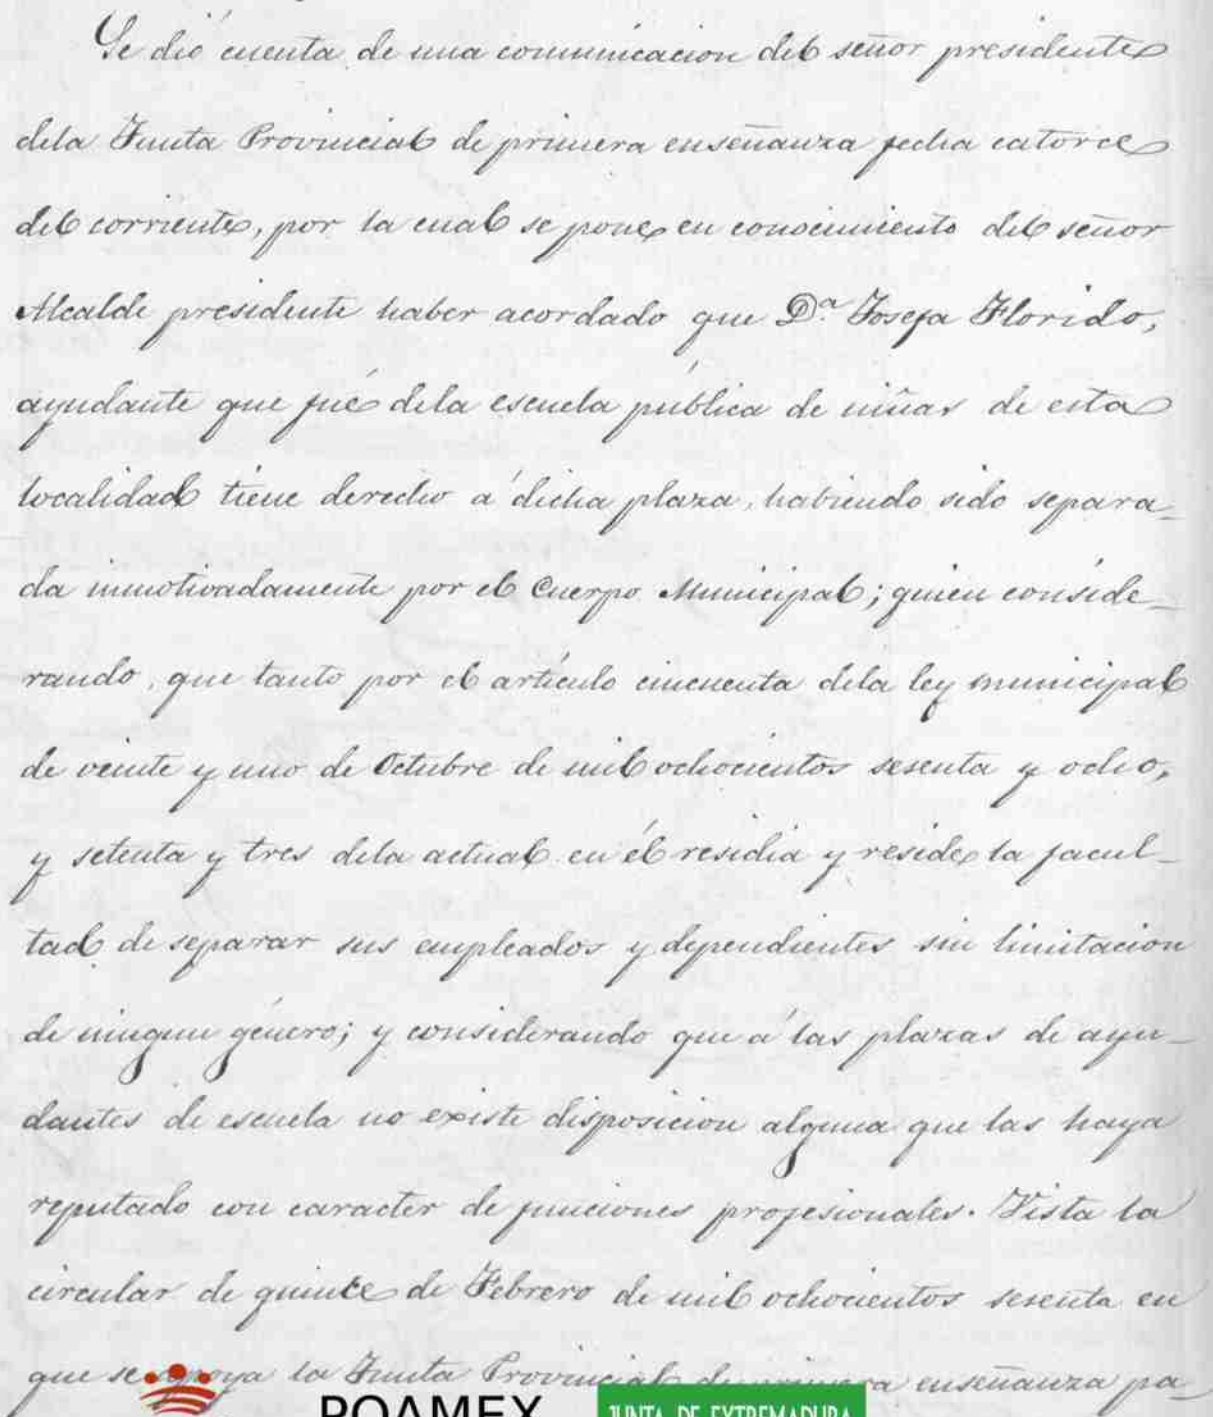 Se dió cuenta de una comunicacion del señor presidente
dela Junta Provincial de primera enseñanza fecha catorce
del corriente, por la cual se pone en conocimiento del señor
Alcalde presidente haber acordado que D.ª Josefa Florido,
ayudante que fué dela escuela pública de niñas de esta
localidad tiene derecho á dicha plaza, habiendo sido separa_
da inmotivadamente por el Cuerpo Municipal; quien conside_
rando, que tanto por el artículo cincuenta dela ley municipal
de veinte y uno de Octubre de mil ochocientos sesenta y ocho,
y setenta y tres dela actual en él residia y reside la facul_
tad de separar sus empleados y dependientes sin limitacion
de ningun género; y considerando que á las plazas de ayu_
dantes de escuela no existe disposicion alguna que las haya
reputado con caracter de funciones profesionales. Vista la
circular de quince de Febrero de mil ochocientos sesenta en
que se apoya la Junta Provincial de primera enseñanza pa_
POAMEX
JUNTA DE EXTREMADURA